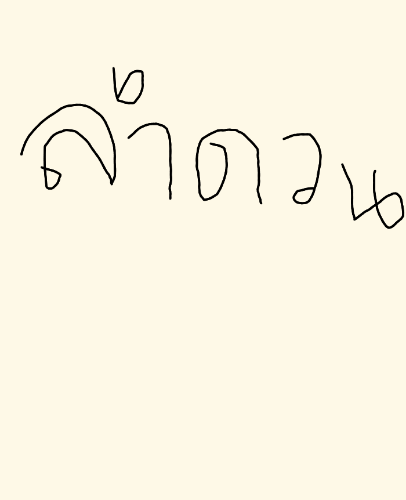 ลำดวน